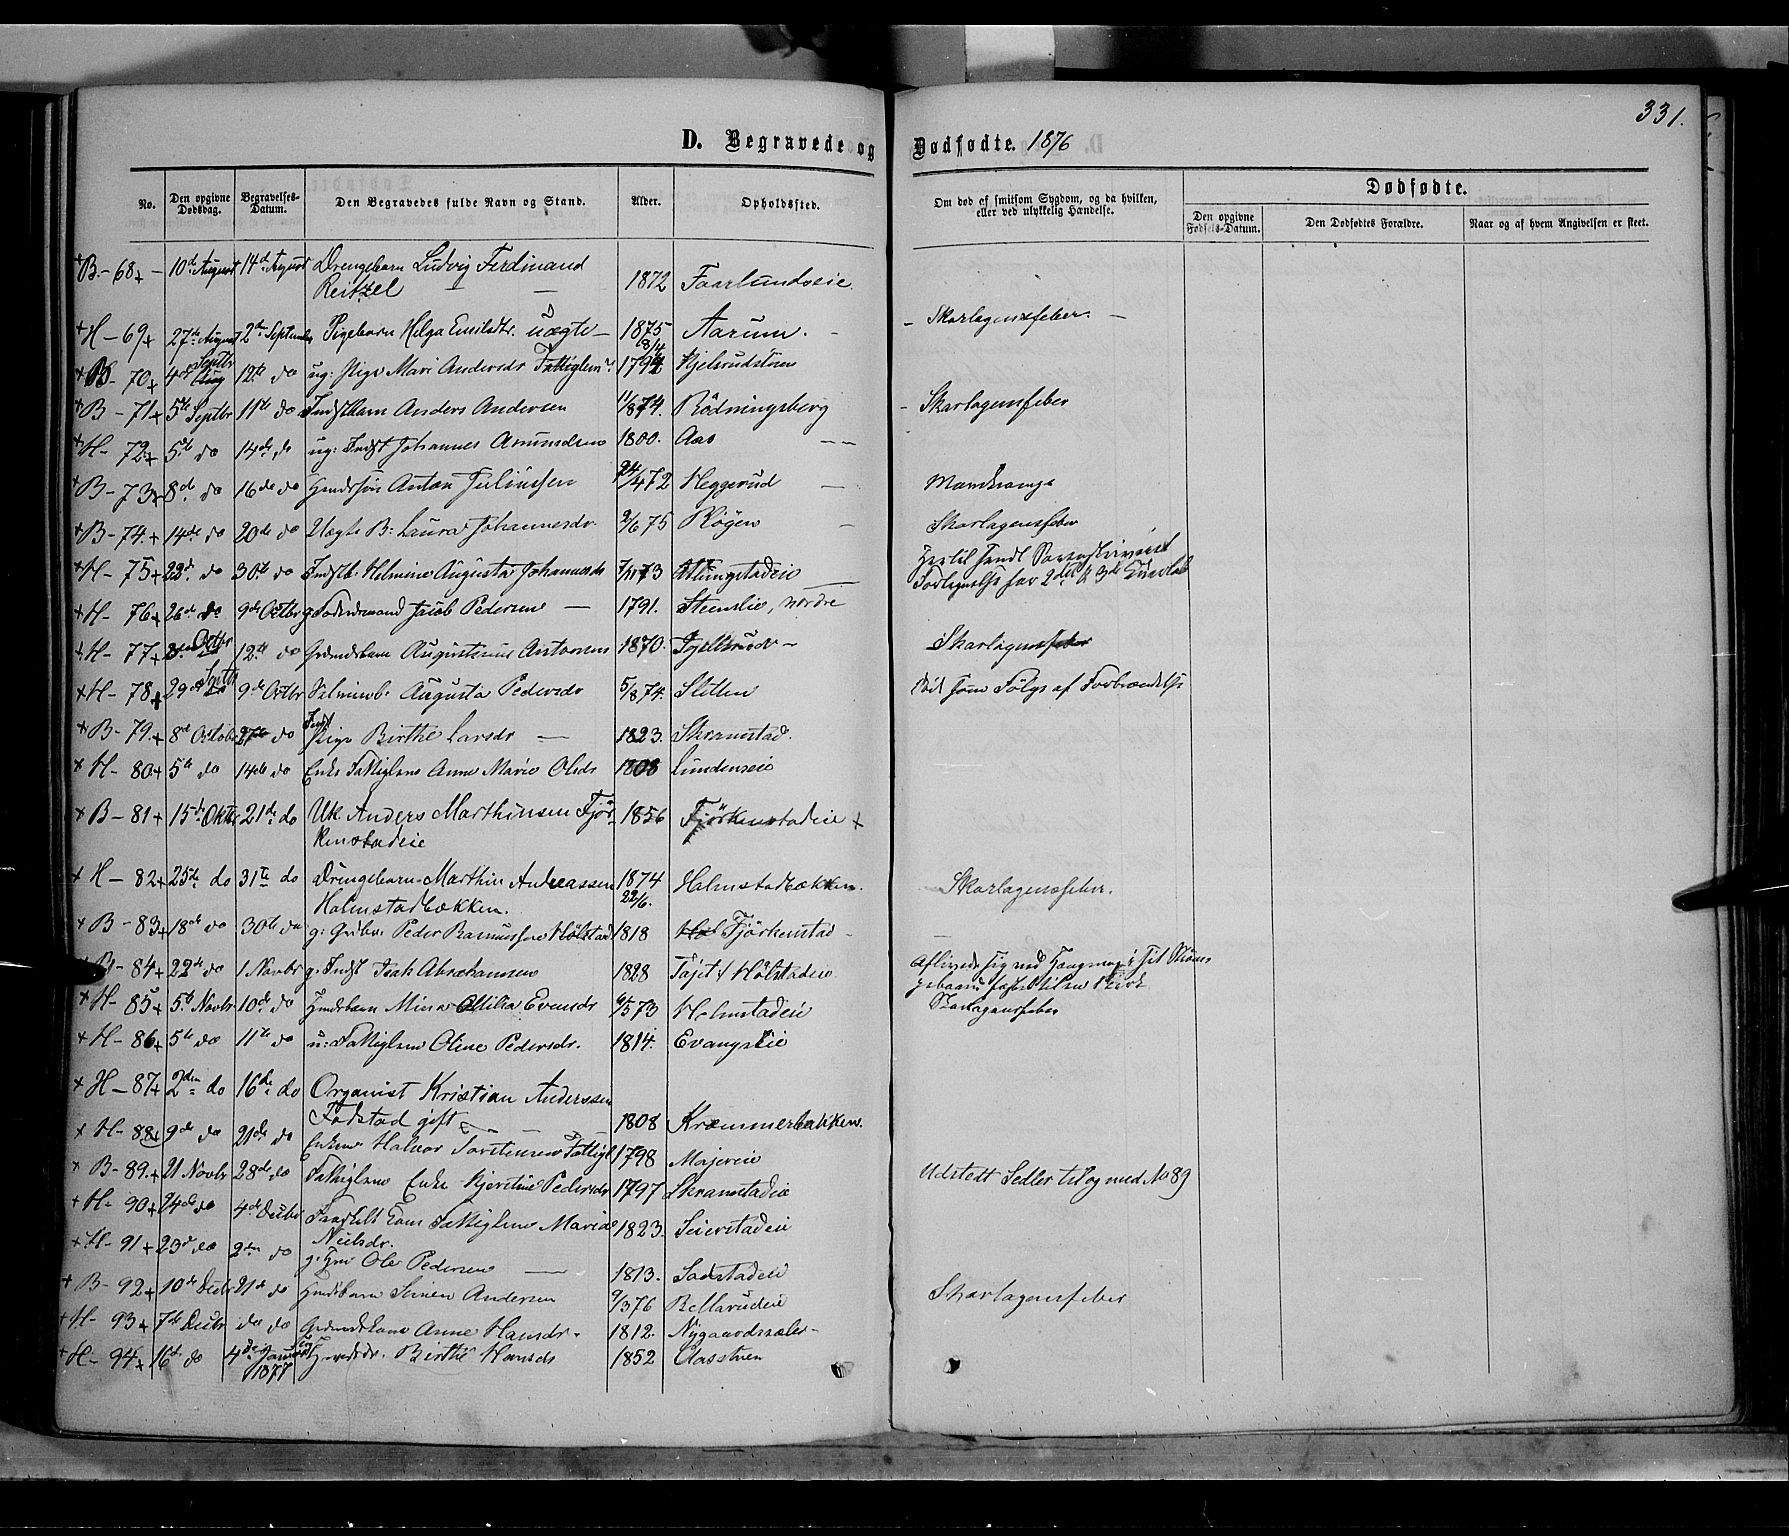 331.
D. Begravede og Dødfødte. 1876
No. Den opgivne Dødsdag. Begravelses-Datum. Den Begravedes fulde Navn og Stand. Alder. Opholdssted. Om død af smitsom Sygdom, og da hvilken, eller ved ulykkelig Hændelse. Dødfødte.
Den opgivne Fødsels-Datum. Den Dødfødtes Forældre. Naar og af hvem Angivelsen er skeet.
+ B - 68 + 10de August 14de August Drengebarn Ludvig Ferdinand
Reitzel 1872 Faarlundeie
+ H - 69 + 27de August 2den September Pigebarn Helga Emilsdtr. uægte 1875 8/4 Aarum. Skarlagensfeber.
+ B - 70 + 4de Septbr Aug 12te do ug: Pige Mari Andersdr Fattiglem 1794 Kjelsrudstuen
+ B - 71 + 5te Septbr 11te do Indstbarn Anders Andersen 11/8 74. Rødningsberg Skarlagensfeber
+ H - 72 + 5te do 14de do ug: Indst Johannes Amundsen 1800. Aas
+ B - 73 + 8de do 16de do Grndsøn Anton Juliussen 24/4 72 Heggerud
+ B - 74 + 14de do 20de do Uægte B: Laura Johannesdr. 2/6 75 Røgen Skarlagensfeber
+ H - 75 + 22de do 30te do Indstb. Helmine Augusta Johannesdr 7/11 73
for 2det & 3de
+ H - 76 + 26de do 9de Octbr g. Føderaadsmand Jacob Pedersen 1791. Steenslie, nordre
+ H - 77 + Octbr 12te do Augustinus Antonsen 1870. Skarlagensfeber
+ H - 78 + 29de Septbr 9de Octbr Augusta Pedersdr 5/8 74. Sletten Død som Følge af Forbrændelse
+ B - 79 + 8de October 27de do Indst Pige Birthe Larsdr 1823. Skramstad.
+ H - 80 + 5te do 14de do Enke Fattiglem Anne Marie Olsdr 1808 Lundenseie
+ B - 81 + 15de Oktbr 21de do Uk Anders Marthinsen Fjør-
kenstadeie 1856 Fjørkenstadeie +
+ H - 82 + 25de do 31te do Drengebarn Marthin Andreassen
Holmstadbækken. 1874 22/6. Holmstadbækken. Skarlagensfeber.
+ B - 83 + 18de do 30te do g: Grdbr. Peder Rasmussen Hølstad 1818 Fjørkenstad
+ B - 84 + 22de do 1 Novbr g. Indst Isak Abrahamsen 1828 Tajet / Hølstadeie Aflivede sig ved Hængning i
+ H - 85 + 5te Novbr 10de do Indstbarn Mina Ottilia Evensdr 9/5 73 Holmstadeie Skarlagensfeber
+ H - 86 + 5te do 11te do u: Fattiglem Oline Pedersdr. 1814. Evangseie
+ H - 87 + 2den do 16de do Organist Kristian Anderssen
Fodstad gift 1808 Kræmmerbakken.
+ H - 88 + 9de do 21de do Enkem Halvor Torstensen Fattigl 1798 Majereie
+ B - 89 + 21 Novbr 28de do Fattiglem Enke Kjerstine Pedersdr 1797 Skramstadeie Udstedt Sedler til og med No 89
+ H - 90 + 24de do 4de Decbr Fraskilt Kone Fattiglem Marie
Nielsdr. 1823. Seierstadeie
+ H - 91 + 23de do 2den do g. Ole Pedersen 1813. Sadstadeie
+ B - 92 + 10de Decbr 21de do Indstbarn Simen Andersen 9/3 76 Bellerudeie Skarlagensfeber
+ H - 93 + 7de Decbr do do Anne Hansdr. 1812. Nygaardssæter
+ H - 94 + 16de do 4de Januar 1877 Birthe Hansdr 1852 Aasstuen